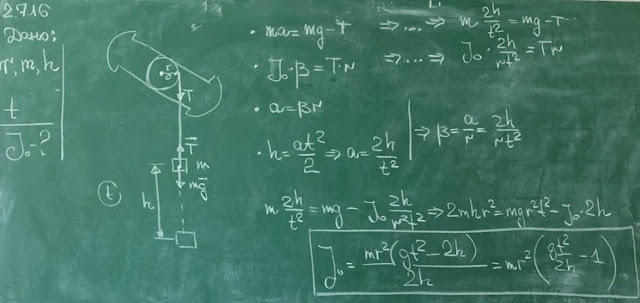 2.716
Дано:
r, m, h
t
J₀-?
r
O
T
T⃗
m
mg⃗
h
t
• ma = mg-T ⇒ ... ⇒ m 2h/t² = mg-T
• J₀·β = T·r ⇒ ... ⇒ J₀·2h/rt² = Tr
• a = βr
• h = at²/2 ⇒ a = 2h/t² ⇒ β = a/r = 2h/rt²
m 2h/t² = mg - J₀ 2h/r²t² ⇒ 2mhr² = mgr²t² - J₀·2h
J₀ = mr²(gt²-2h)/2h = mr²(gt²/2h - 1)